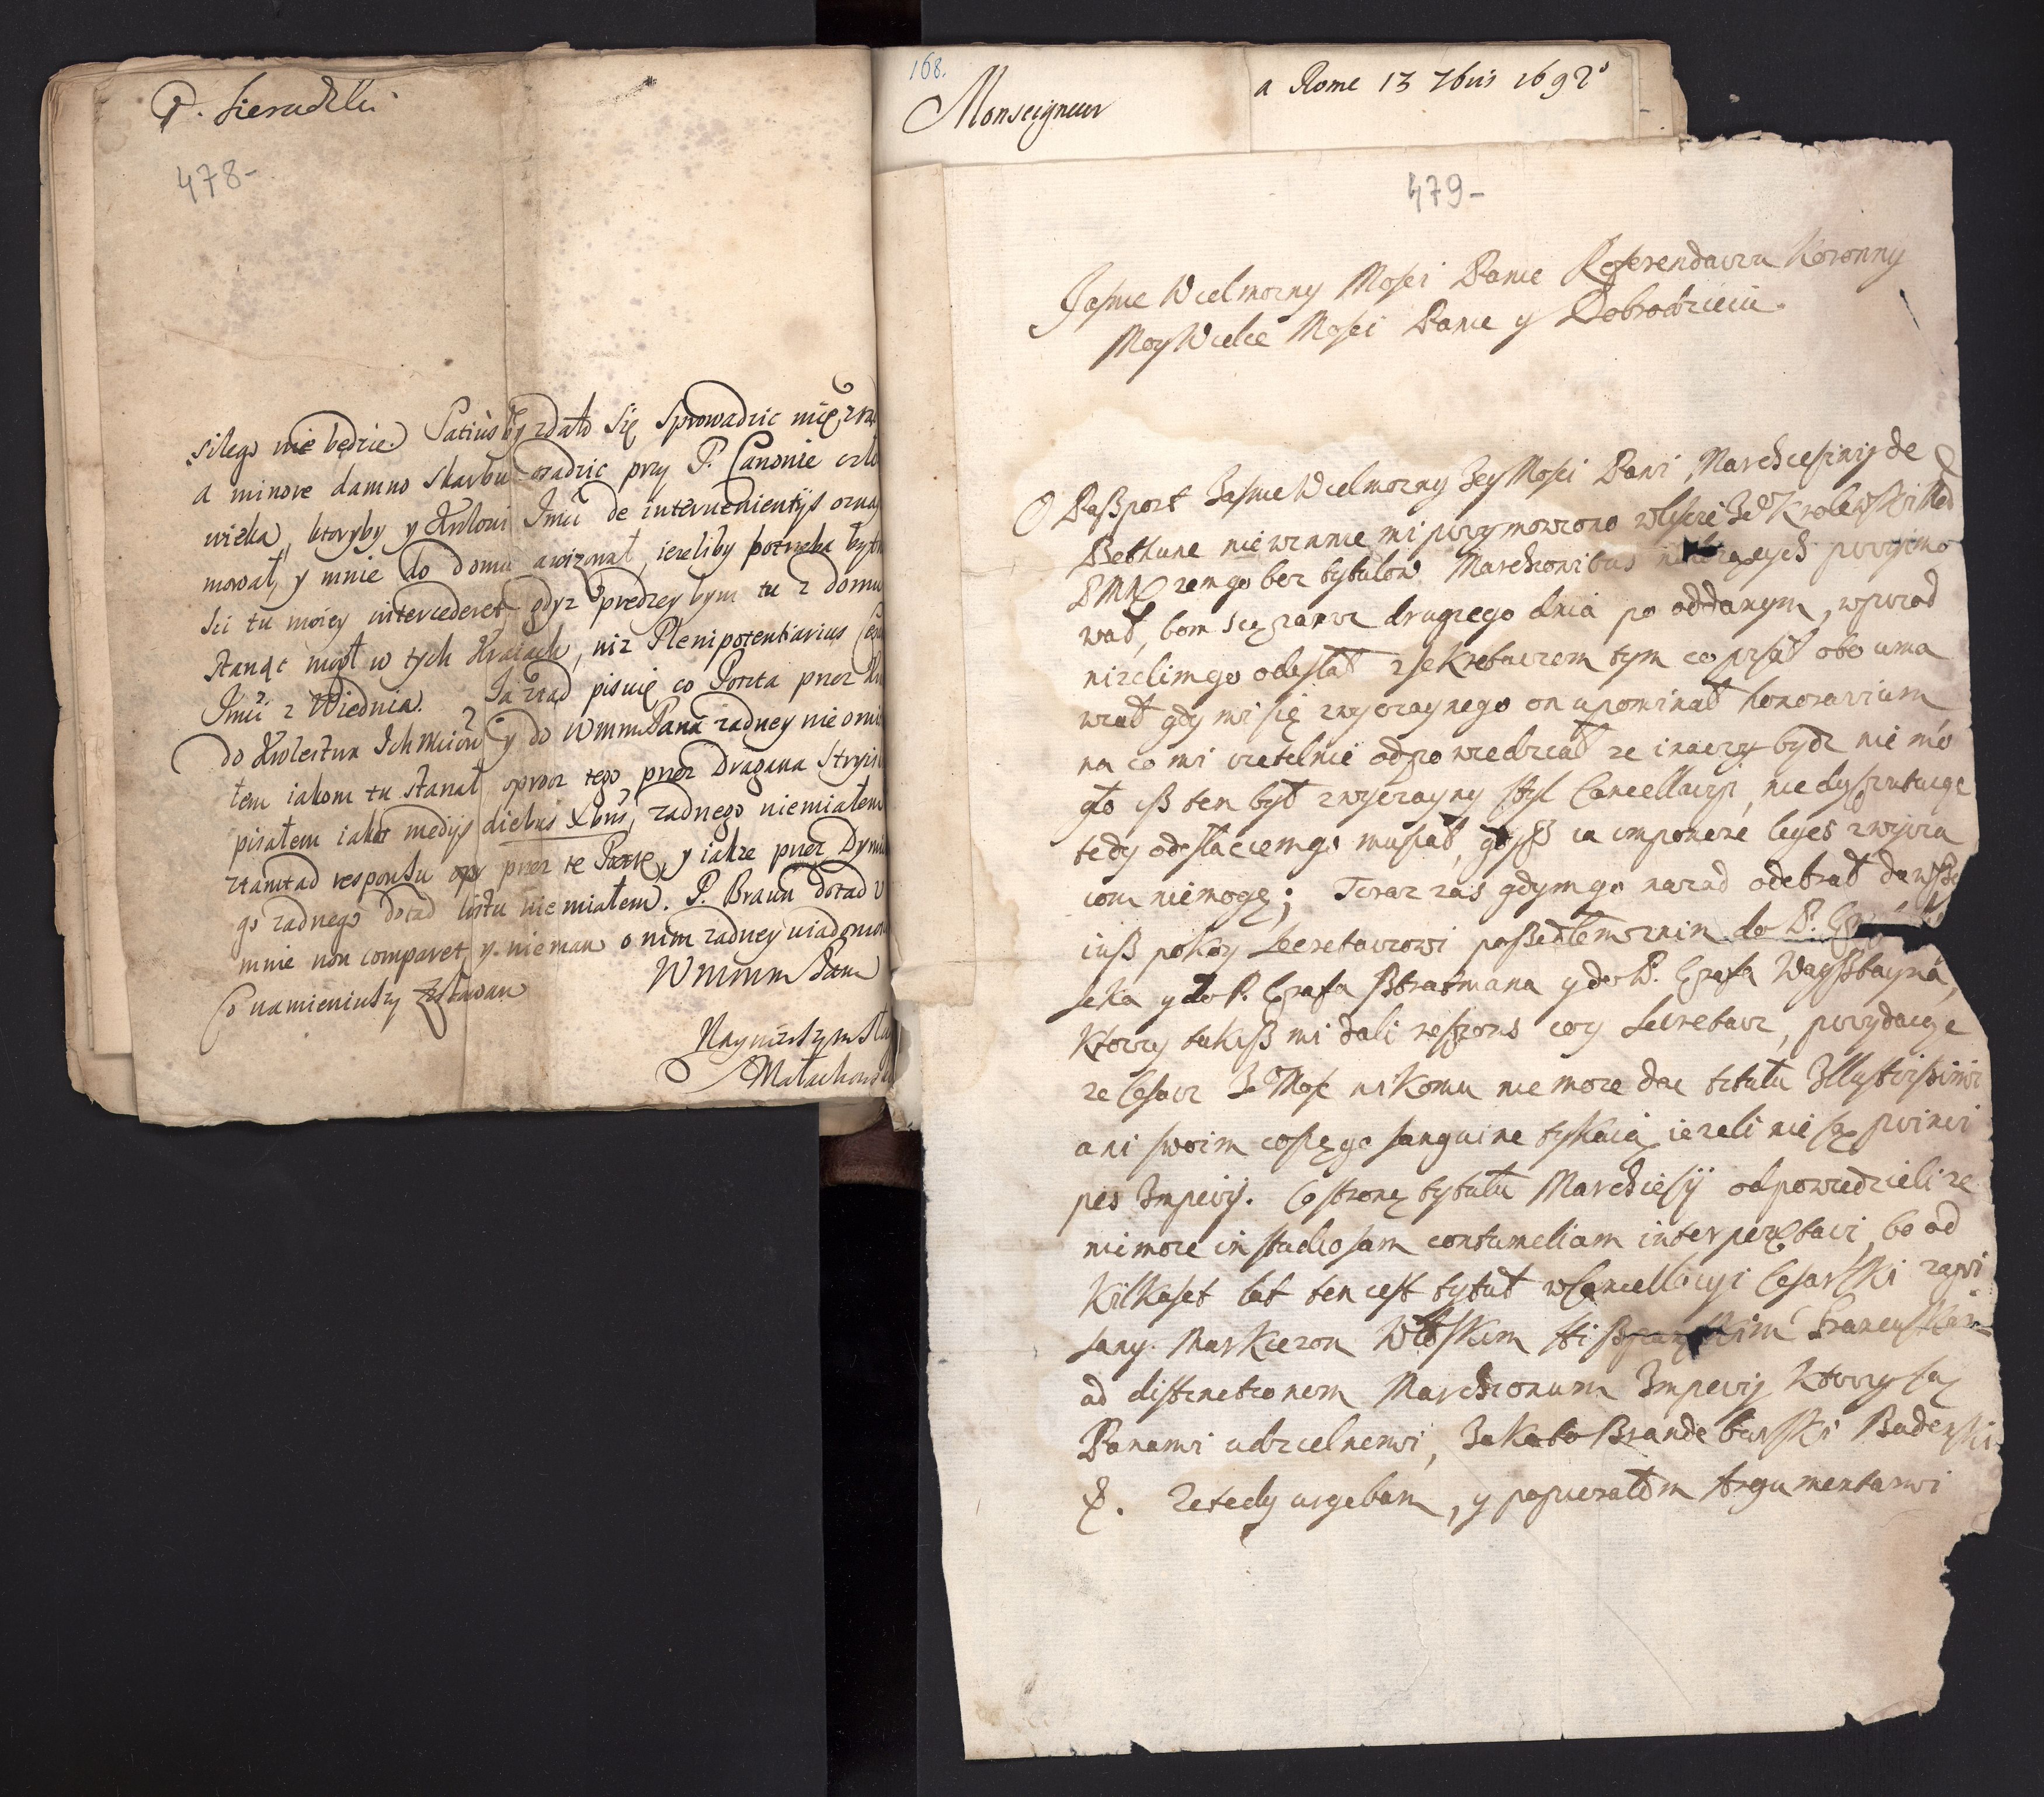 P. Sieradzki
478-
silego nie będzie. Satius by zdało się sprowadzic mię
a minore damno skarbu osadzic przy P. Canonie
wieka, ktoryby y Krolowi Jmći de intervenientijs
mował, y mnie do domu awizował, ieżeliby potrzeba
sci tu moiey intercederet, gdyz prędzey bym tu z domu
stanąc mogł w tych Kraiach, niz Plenipotentiarius
Jmći z Wiednia. Ja ztąd pisuię co Poczta przez
do Krolestwa Ichmciow y do WmmPana zadney nie
łem iakom tu stanął, oprocz tego przez Dragana
pisałem iakos medijs diebus Xbris, zadnego niemiałem
ztamtąd responsu przez te Pocztę, y iakze przez
go zadnego dotąd listu nie miałem. P. Braun dotąd
mnie non comparet, y nie mam o nim zadney
Co namieniwszy zostawam
Wmmm Pana
Nayniższym
Małachowski
168.
Monseigneur
a Rome 13 7bris 1692
479-
Jasnie Wielmozny Mosci Panie Referendarzu Koronny
Moy Wielce Mosci Panie y Dobrodzieiu.
Paßport Jasnie Wielmozny Jey Mosci Pani Marchesiniy de
Bethune nie winnie mi przymowiono w liscie Je Krolewski
PMM zem go bez tytulow Marchionibus przyimo
wał, bom się zaraz drugiego dnia po oddanym, wprzod
nizelim go odesłał z sekretarzem tym co pisał
wiał gdy mi się zwyczaynego on upominał honorarium
na co mi rzetelnie odpowiedział ze inaczy bydz nie mo
gło iß ten był zwyczayny styl Cancellaryi, nie dysputuiąc
tedy odesłac iem go musiał, gdyß ia imponere leges zwycza
iom niemogę; Teraz zas gdym go nazad odebrał
iuß pokoy Secretarzowi poßedłem z nim do P.
seka y do P. Grafa Stratmana y do P. Grafa Waysstayna,
Ktorzy takiß mi dali respons coy Secretarz, przydaiąc
ze Cesarz Je Mosc nikomu nie moze dac titułu Illustrissimi
ani swoim co się go sanguine tykaią iezeli nie są princi
pes Imperij. Co stronę tytułu Marchiesij odpowiedzieli ze
niemoze in studiosam contumeliam interpretari, bo od
Kilkaset lat ten iest tytuł w Cancellaryi Cesarski zapi
sany. Markiezom Włoskim Hißpanskim Francuskim
ad distinctionem Marchionum Imperij Ktorzy są
Panami udzielnemi, Jako to Brandeburski Badenski
&. Ze tedy urgebam, y popierałem Argumentami